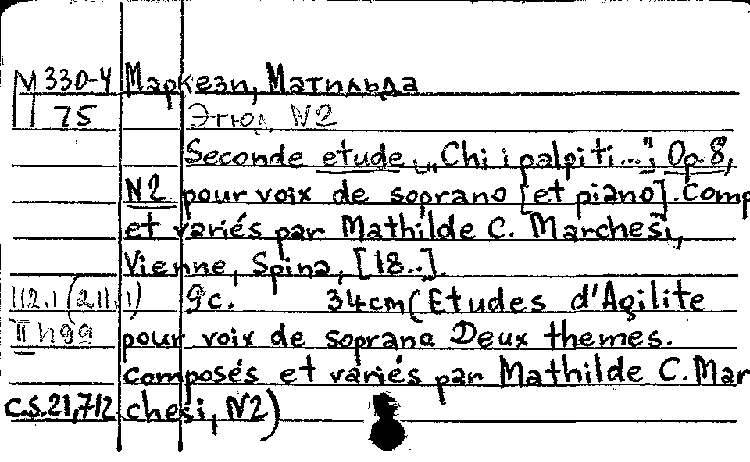 М 330-4 Маркези, Матильда
П 75 Этюд, N2
Seconde etude „Chi i palpiti...“, Op. 8,
N2 pour voix de soprano [et piano]. Comp
et variés par Mathilde C. Marchesi,
Vienne, Spina, [18..].
112.1 (2.11.1) 9c. 34cm (Etudes d'Agilite
II пяя pour voix de soprano Deux themes.
composés et variés par Mathilde C. Mar
C.S.21,712 chesi, N2)